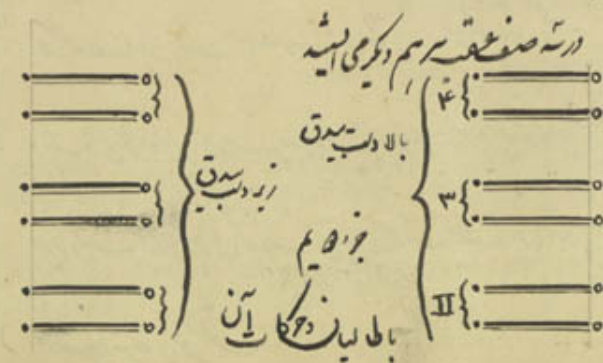 در سه صف عقب سر هم دیگر می ایستد
۴
بالا دست بیدق
زیر دست بیدق
۳
جزو
II
باطالیان و حرکات آن